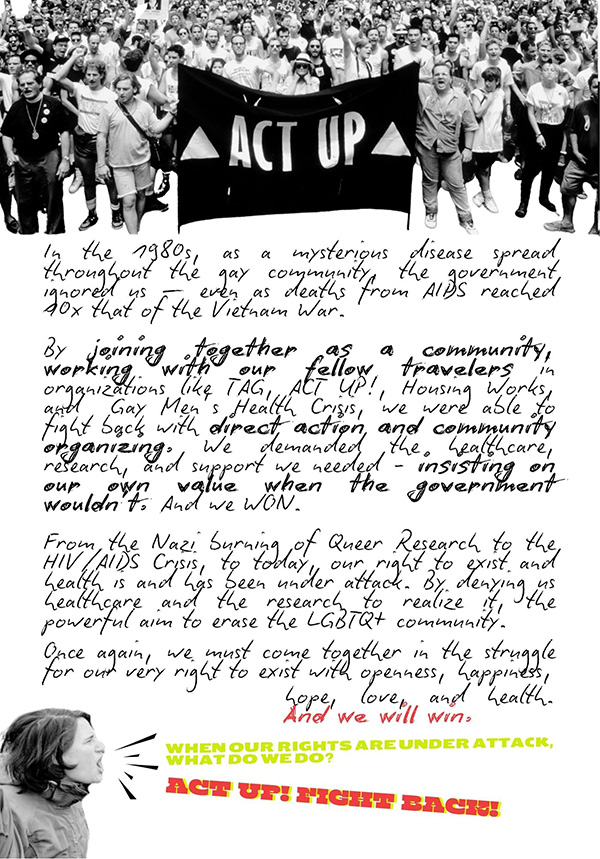 ACT UP
In the 1980s, as a mysterious disease spread
throughout the gay community, the government
ignored us – even as deaths from AIDS reached
40x that of the Vietnam War.
By joining together as a community,
working with our fellow travelers in
organizations like TAG, ACT UP!, Housing Works,
and Gay Men s Health Crisis, we were able to
fight back with direct action and community
organizing. We demanded the healthcare,
research, and support we needed – insisting on
our own value when the government
wouldn't. And we WON.
From the Nazi burning of Queer Research to the
HIV/AIDS Crisis, to today, our right to exist and
health is and has been under attack. By denying us
healthcare and the research to realize it, the
powerful aim to erase the LGBTQ+ community.
Once again, we must come together in the struggle
for our very right to exist with openness, happiness,
hope, love, and health.
And we will win.
WHEN OUR RIGHTS ARE UNDER ATTACK,
WHAT DO WE DO?
ACT UP! FIGHT BACK!